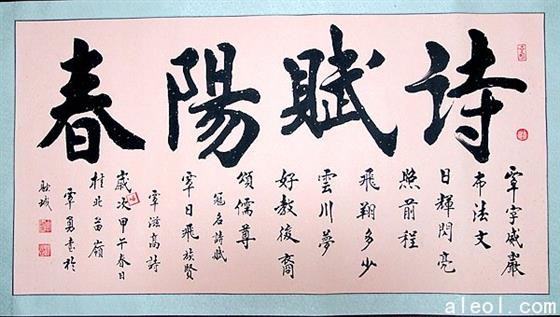 诗賦陽春
覃字威嚴
布法文
日輝閃亮
照前程
飛翔多少
雲川夢
好教後裔
頌儒尊
冠名詩賦
覃日飛族賢
覃滋高詩
歲次甲午春日
桂北苗嶺
覃勇書於
融城
aleol.com